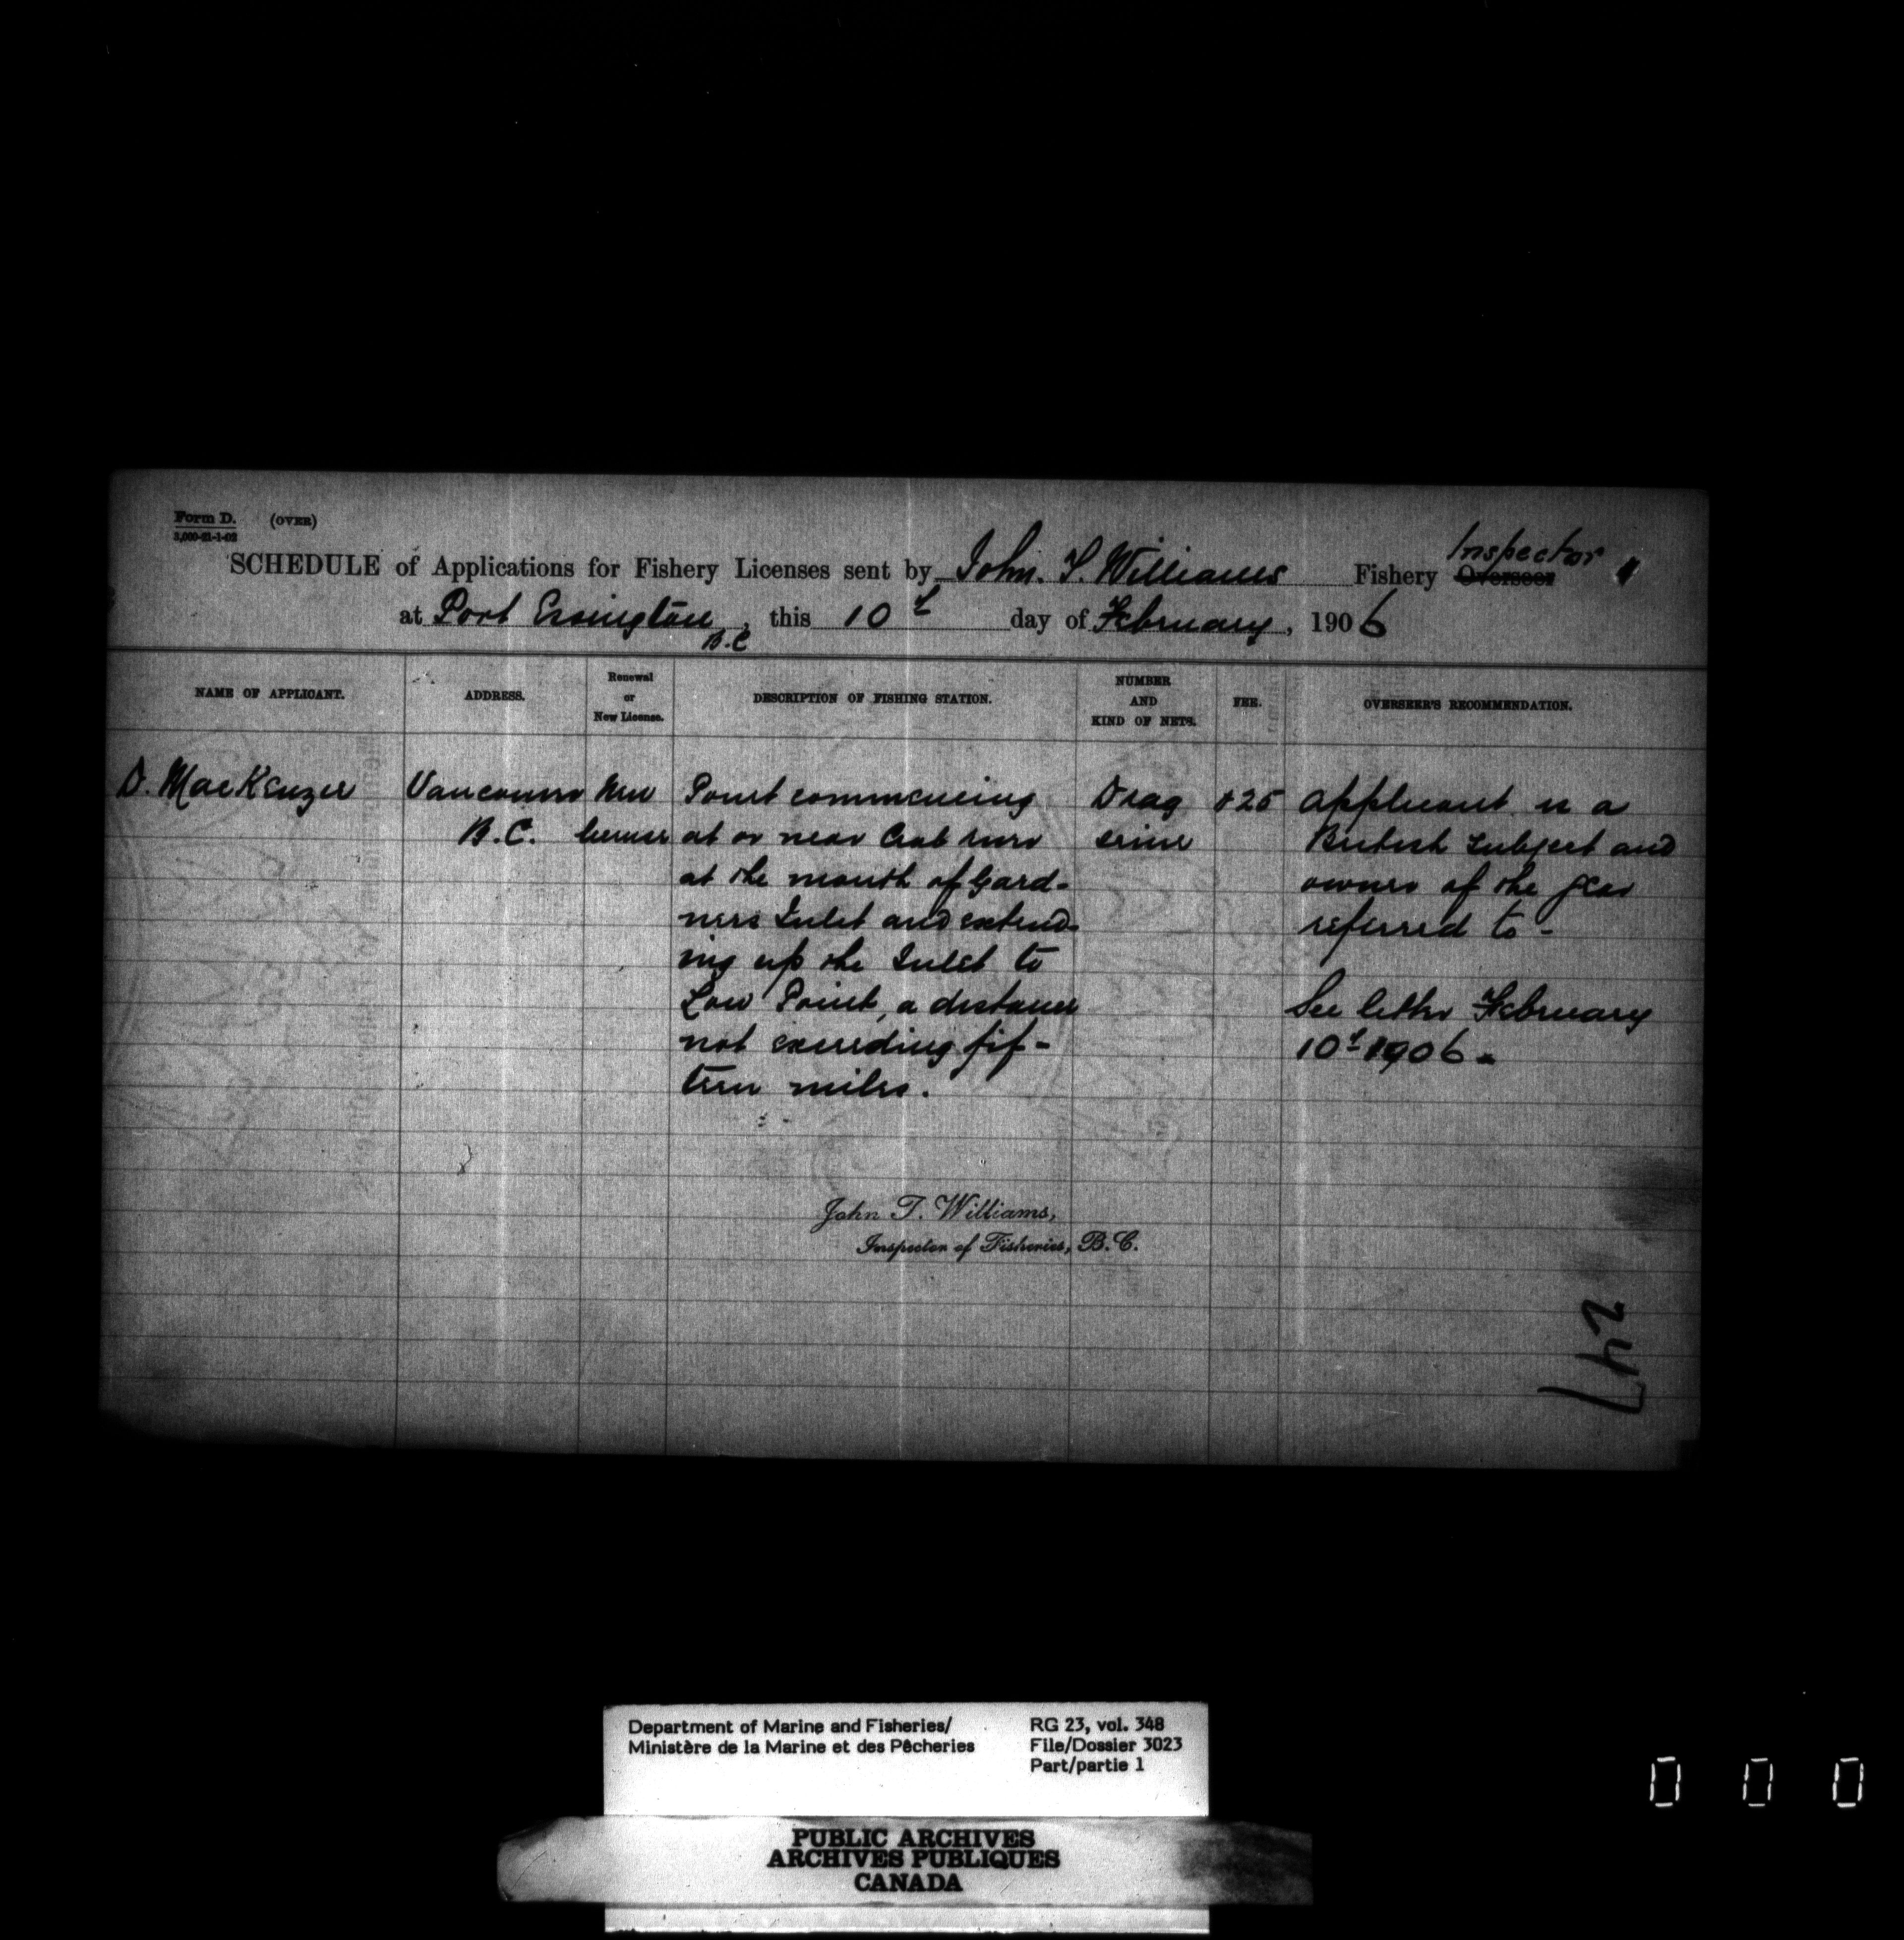 Form D. (OVER)
3,000-21-1-02
SCHEDULE of Applications for Fishery Licenses sent by John. T. Williams Fishery Overseer Inspector
at Port Essington B.C, this 10t day of February, 1906
NAME OF APPLICANT. ADDRESS. Renewal or New License. DESCRIPTION OF FISHING STATION. NUMBER AND KIND OF NETS. FEE. OVERSEER'S RECOMMENDATION.
D. MacKenzie Vancouver New Point commencing Drag $25 applicant is a
B.C. license at or near Crab River seine British subject and
at the mouth of Gard- owner of the gear
ners Inlet and extend- referred to -
ing up the Inlet to
Low Point, a distance See letter February
not exceeding fif- 10t 1906 -
teen miles.
John T. Williams,
Inspector of Fisheries, B.C.
247
Department of Marine and Fisheries/ RG 23, vol. 348
Ministère de la Marine et des Pêcheries File/Dossier 3023
Part/partie 1
PUBLIC ARCHIVES
ARCHIVES PUBLIQUES
CANADA
0 0 0